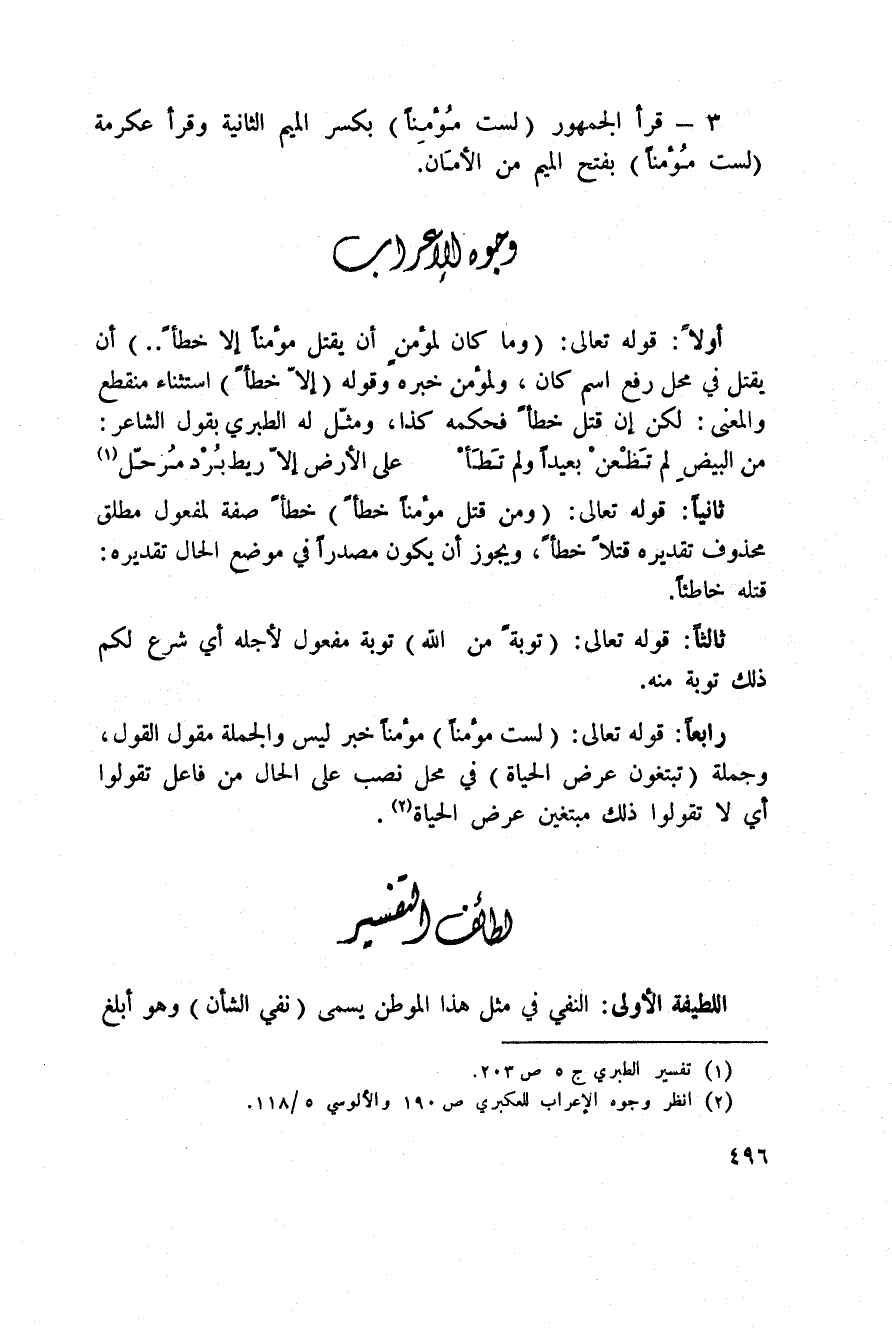 ٣ – قرأ الجمهور (لست مُؤْمِناً) بكسر الميم الثانية وقرأ عكرمة
(لست مُؤْمَناً) بفتح الميم من الأمان.
وجوه الإعراب
أولاً: قوله تعالى: (وما كان لمؤمنٍ أن يقتل مؤمناً إلا خطأً..) أن
يقتل في محل رفع اسم كان ، ولمؤمن خبره وقوله (إلاّ خطأً) استثناء منقطع
والمعنى : لكن إن قتل خطأً فحكمه كذا، ومثّل له الطبري بقول الشاعر :
من البيضِ لم تَظْعنْ بعيداً ولم تَطَأْ على الأرض إلاّ ريط بُرْد مُرَحّل(١)
ثانياً: قوله تعالى: (ومن قتل مؤمناً خطأً) خطأً صفة لمفعول مطلق
محذوف تقديره قتلاً خطأً، ويجوز أن يكون مصدراً في موضع الحال تقديره:
قتله خاطئاً.
ثالثاً: قوله تعالى: (توبةً من الله) توبة مفعول لأجله أي شرع لكم
ذلك توبة منه.
رابعاً: قوله تعالى: (لست مؤمناً) مؤمناً خبر ليس والجملة مقول القول،
وجملة (تبتغون عرض الحياة) في محل نصب على الحال من فاعل تقولوا
أي لا تقولوا ذلك مبتغين عرض الحياة(٢) .
لطائف التفسير
اللطيفة الأولى: النفي في مثل هذا الموطن يسمى (نفي الشأن) وهو أبلغ
(١) تفسير الطبري ج ٥ ص ٢٠٣.
(٢) انظر وجوه الإعراب للعكبري ص ١٩٠ والألوسي ٥/١١٨.
٤٩٦